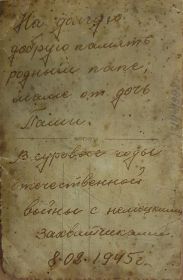 На долгую
добрую память
родным папе,
маме от дочь
Тамы.
В суровые годы
отечественной
войны с немецкими
захватчиками
8-03-1945г.